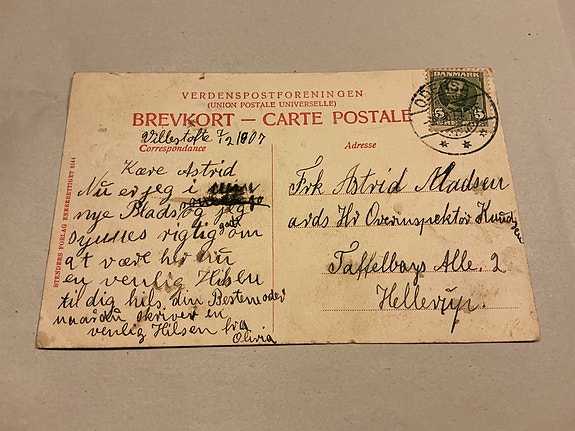 VERDENSPOSTFORENINGEN
(UNION POSTALE UNIVERSELLE)
BREVKORT — CARTE POSTALE
Correspondance
Adresse
STENDERS FORLAG ENEBERETTIGET 6144
DANMARK
5 5
ODENSE
Villestofte 7/2 1907
Kære Astrid
Nu er jeg i
nye Plads og jeg
synnes rigtig godt om
at være her nu
en venlig Hilsen
til dig hels din Bestemoder
naar du skriver en
venlig Hilsen fra
Olivia
Frk Astrid Madsen
adrs Hr Overinspektør Knudsen
Taffelbays Alle. 2
Hellerup.